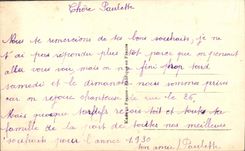 Chère Paulette
Nous te remercions de tes bons souhaits, je ne
t'ai pas répondu plus tôt parce que je pensais
aller vous voir mais on a fini trop tard
samedi et le dimanche nous somme pris
car on rejoue chanteuse de rue le 26,
Mais quoique tardifs reçois toit et toute ta
famille de la part de toutes nos meilleurs
souhaits pour l'année 1930
ton amie Paulette.